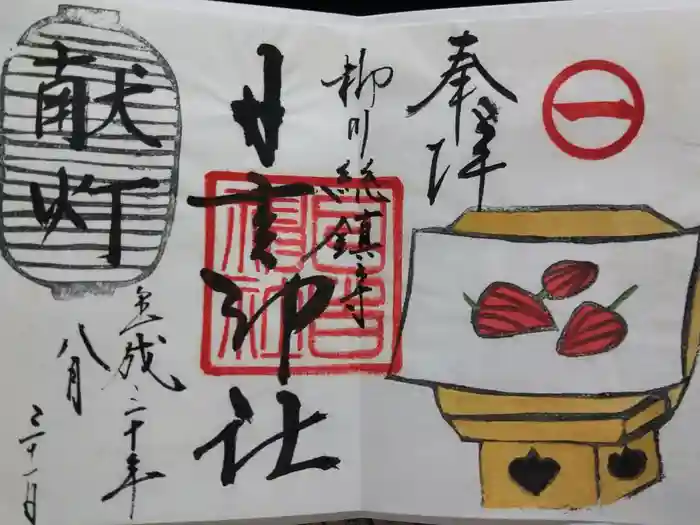 奉拝
柳川総鎮守
日吉神社
献灯
平成三十年
八月
三十一日
一
日吉
神社